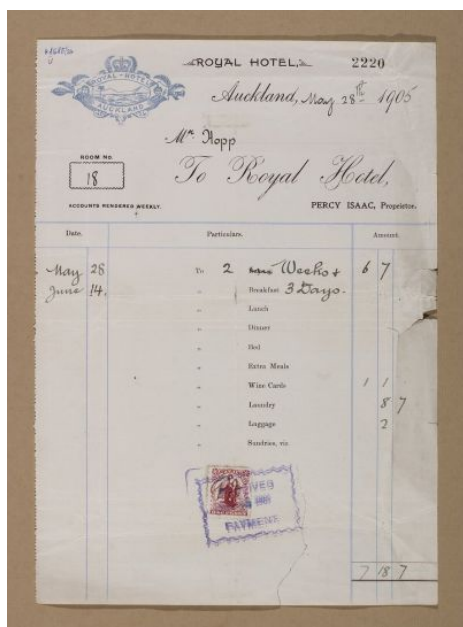 ROYAL HOTEL, 2220
ROYAL HOTEL
AUCKLAND
Auckland, May 28th 1905
Mr Hopp
ROOM No.
18
To Royal Hotel,
ACCOUNTS RENDERED WEEKLY.
PERCY ISAAC, Proprietor.
Date. Particulars. Amount.
May 28 To 2 Weeks + 6 7
June 14. " Breakfast 3 Days.
" Lunch
" Dinner
" Bed
" Extra Meals
" Wine Cards 1 1
" Laundry 8 7
" Luggage 2
" Sundries, viz.
PAYMENT
7 18 7